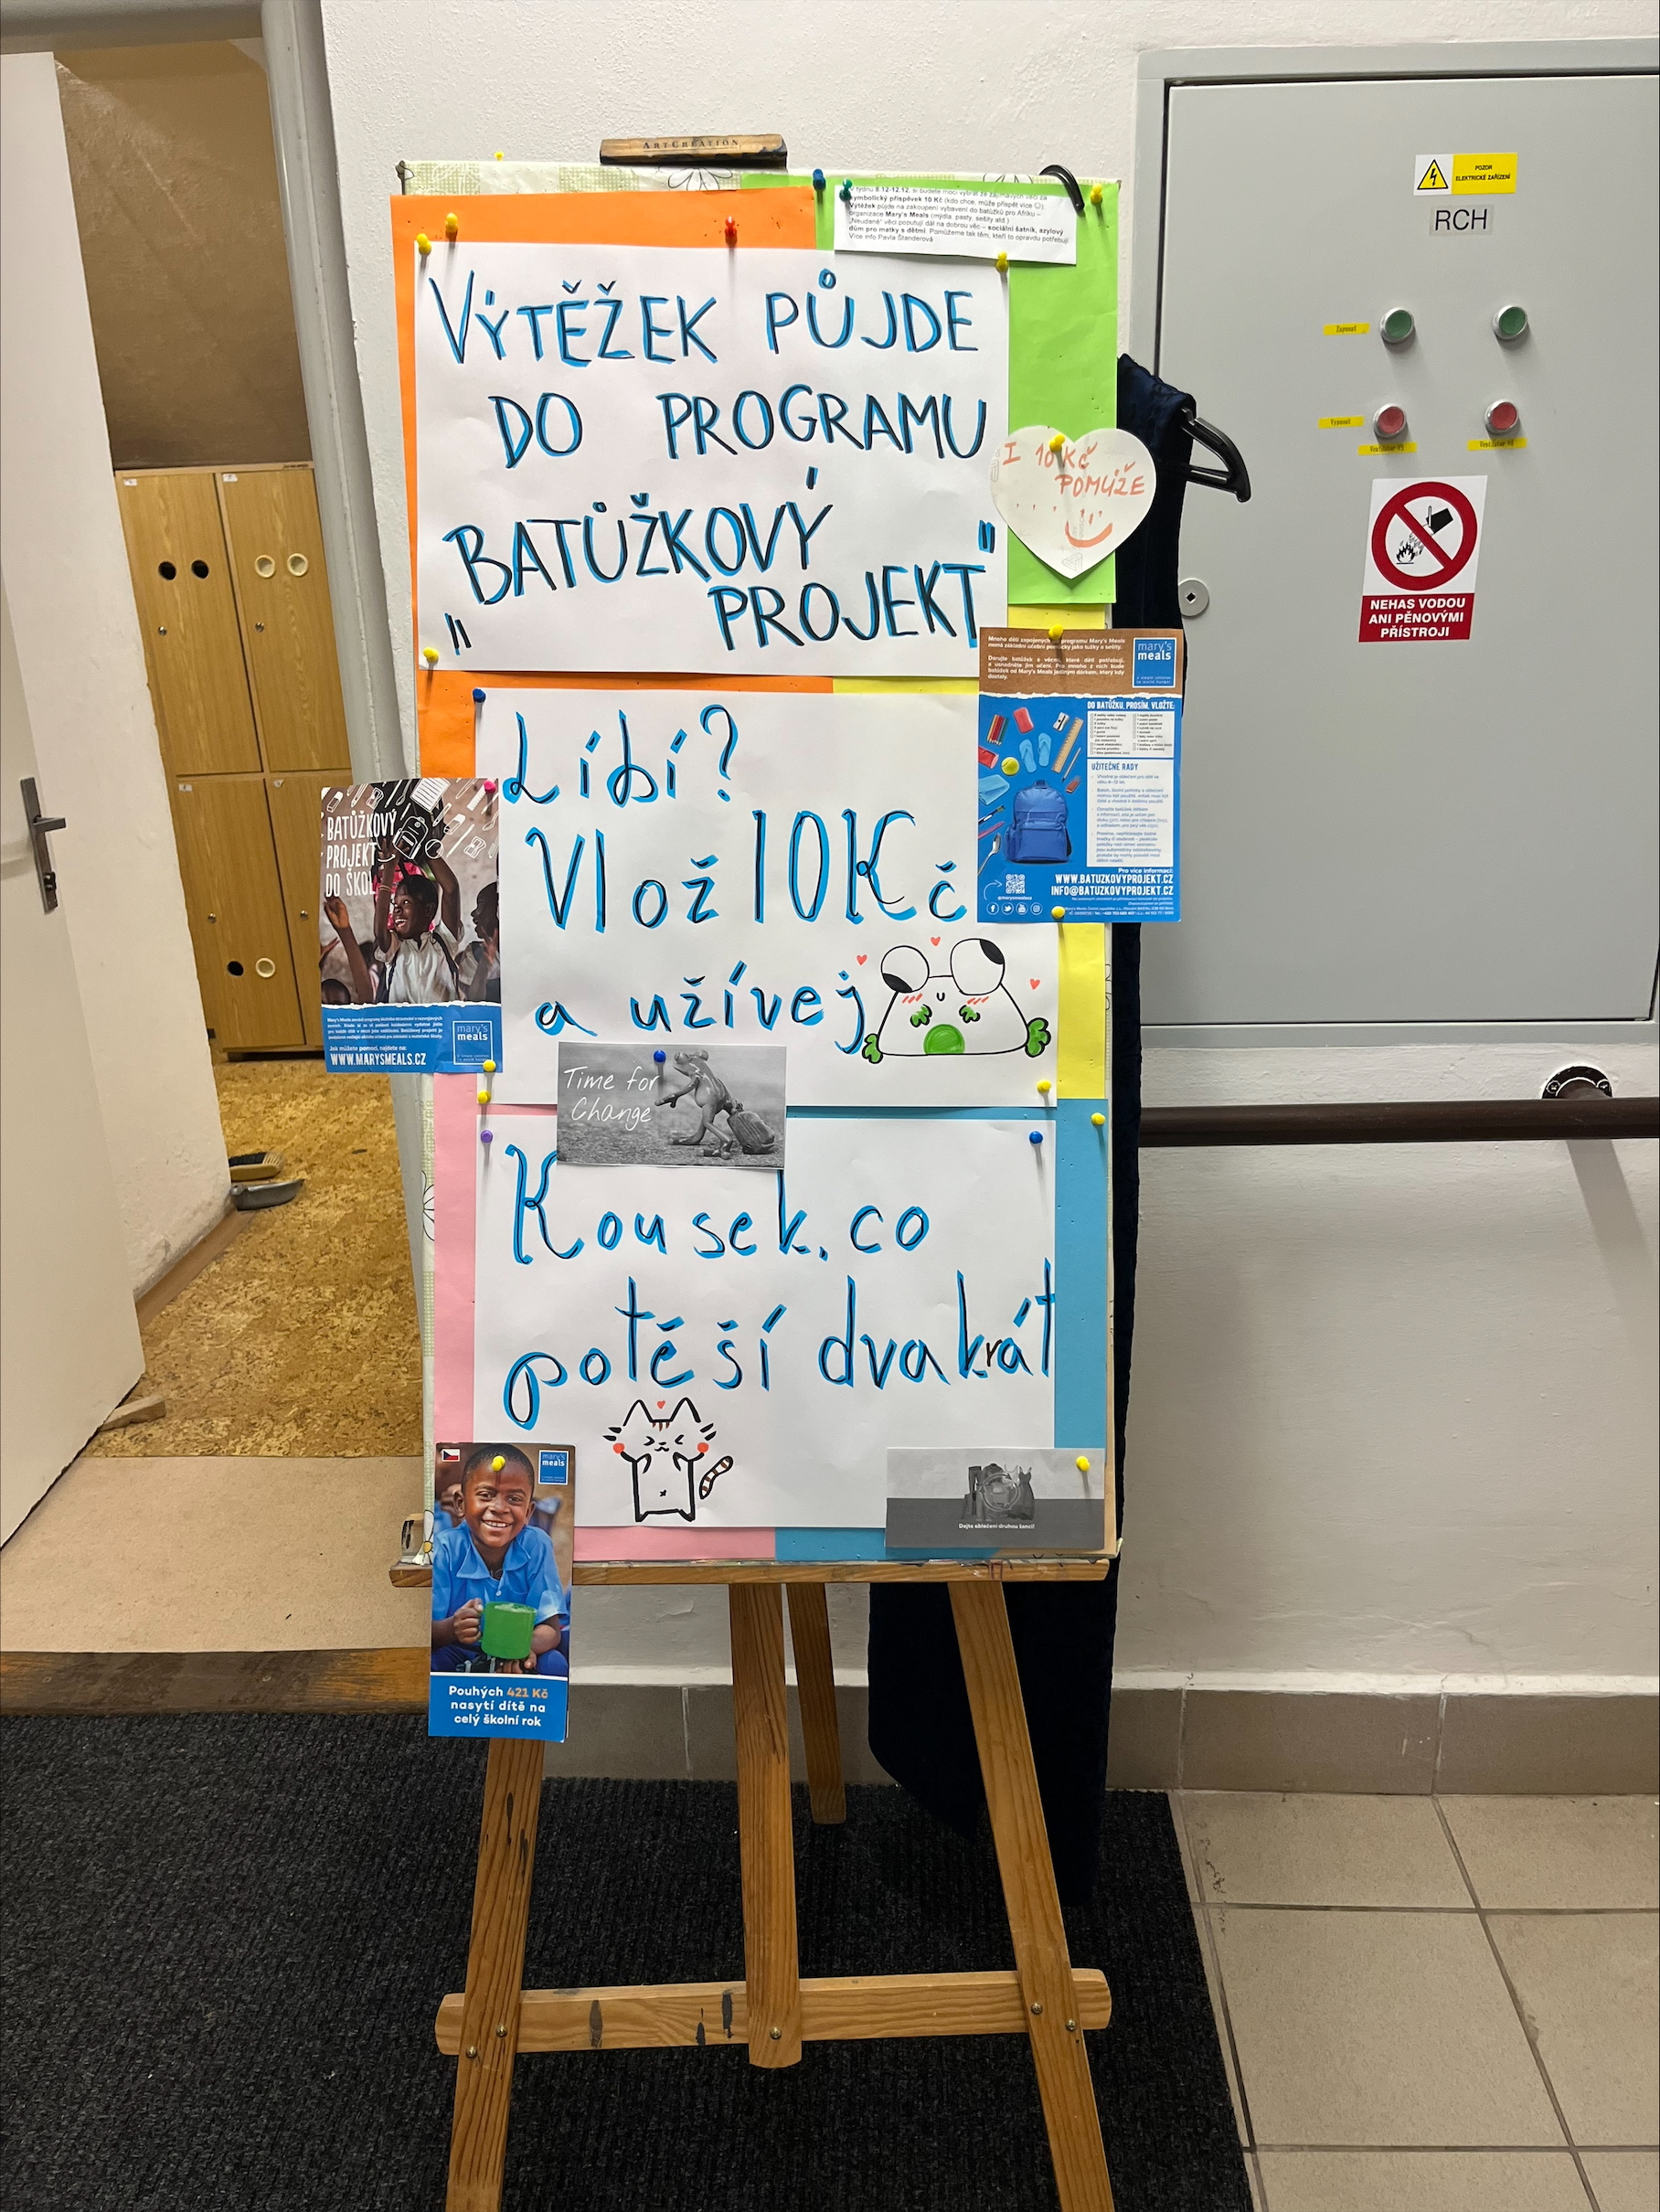 ARTCREATION
V týdnu 8.12-12.12. si budete moci vybrat ze zajímavých věcí za
symbolický příspěvek 10 Kč (kdo chce, může přispět více ☺).
Výtěžek půjde na zakoupení vybavení do batůžků pro Afriku –
organizace Mary's Meals (mýdla, pasty, sešity atd.)
„Neudané" věci poputují dál na dobrou věc – sociální šatník, azylový
dům pro matky s dětmi. Pomůžeme tak těm, kteří to opravdu potřebují
Více info Pavla Štanderová
VÝTĚŽEK PŮJDE
DO PROGRAMU
„BATŮŽKOVÝ
PROJEKT"
I 10 Kč
POMŮŽE
Líbí?
Vlož 10Kč
a užívej
Time for
Change
Kousek, co
potěší dvakrát
Dejte oblečení druhou šanci!
BATŮŽKOVÝ
PROJEKT
DO ŠKOL
Jak můžete pomoci, najdete na:
WWW.MARYSMEALS.CZ
mary's
meals
Mnoho dětí zapojených do programu Mary's Meals
nemá základní učební pomůcky jako tužky a sešity.
mary's
meals
DO BATŮŽKU, PROSÍM, VLOŽTE:
UŽITEČNÉ RADY
Pro více informací:
WWW.BATUZKOVYPROJEKT.CZ
INFO@BATUZKOVYPROJEKT.CZ
mary's
meals
Pouhých 421 Kč
nasytí dítě na
celý školní rok
POZOR
ELEKTRICKÉ ZAŘÍZENÍ
RCH
Zapnout
Vypnout
NEHAS VODOU
ANI PĚNOVÝMI
PŘÍSTROJI